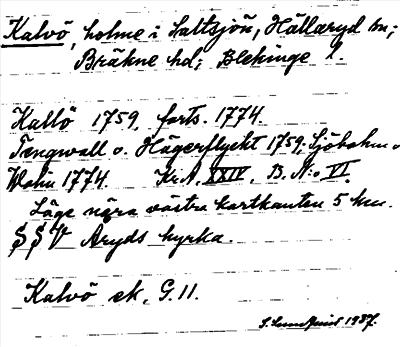 Kalvö, holme i Saltsjön, Hällaryd sn;
Bräkne hd; Blekinge l.
Kallö 1759, forts. 1774.
Tengwall o. Hägerflycht 1759; Sjöbohm o
Wahn 1774. Kr.A. XXIV. B. N:o VI.
Läge nära västra kartkanten 5 km.
S S V Aryds kyrka.
Kalvö ek. G. 11.
S. Lundquist 1937.